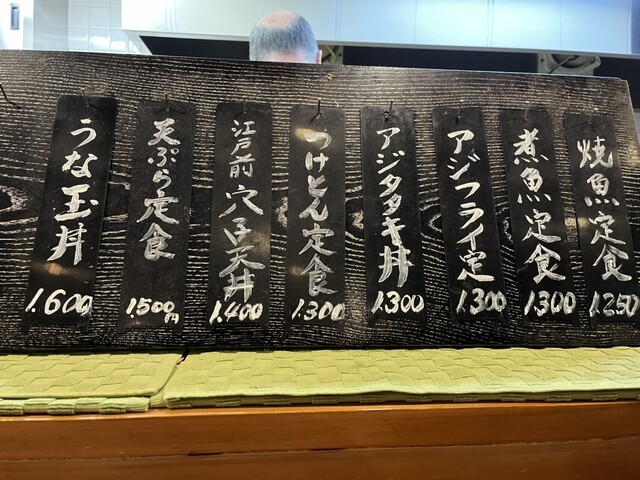 焼魚定食
1.250
煮魚定食
1300
アジフライ定
1.300
アジタタキ丼
1.300
けとん定食
1.300
江戸前穴子天丼
1.400
天ぷら定食
1.500円
うな玉丼
1.600